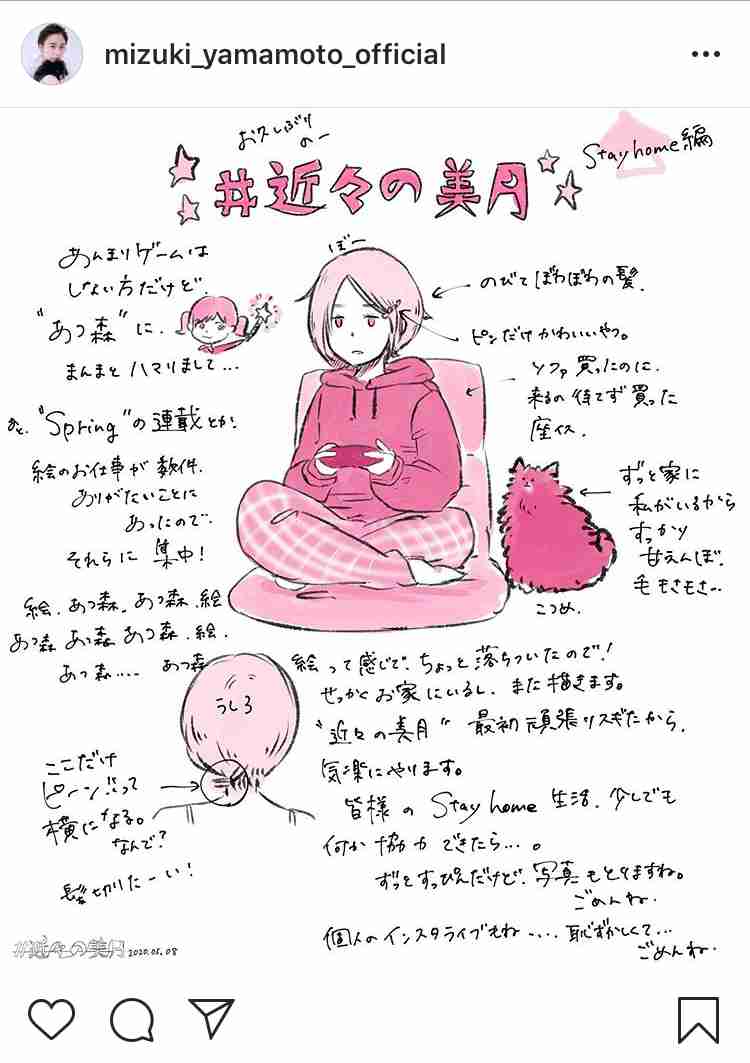 mizuki_yamamoto_official
お久しぶり
のー
Stay home編
#近々の美月
あんまりゲームは
しない方だけど、
"あつ森"に、
まんまと ハマりまして...
あと、"Spring"の連載とか、
絵のお仕事が 数件、
ありがたいことに
あったので、
それらに 集中!
絵、あつ森、あつ森、絵
あつ森、あつ森、あつ森、絵、
あつ森.... あつ森
ぼー
のびて ぼわぼわの髪、
ピンだけ かわいいやつ。
ソファ 買ったのに、
来るの 待てず 買った
座イス、
ずっと家に
私がいるから
すっかり
甘えんぼ、
毛 もさもさ...
こつめ、
絵 って感じで、ちょっと 落ちついたので!
せっかく お家にいるし、また 描きます。
"近々の美月" 最初 頑張りスギたから、
気楽にやります。
皆様の Stay home 生活、少しでも
何か 協力 できたら...。
ずっと すっぴんだけど、写真 もとりますね。
ごめんね、
個人の インスタライブもね.... 恥ずかしくて...
ごめんね、
うしろ
ここだけ
ピーン!!って
横になる。
なんで?
髪切りたーい!
#近々の美月 2020.05.08